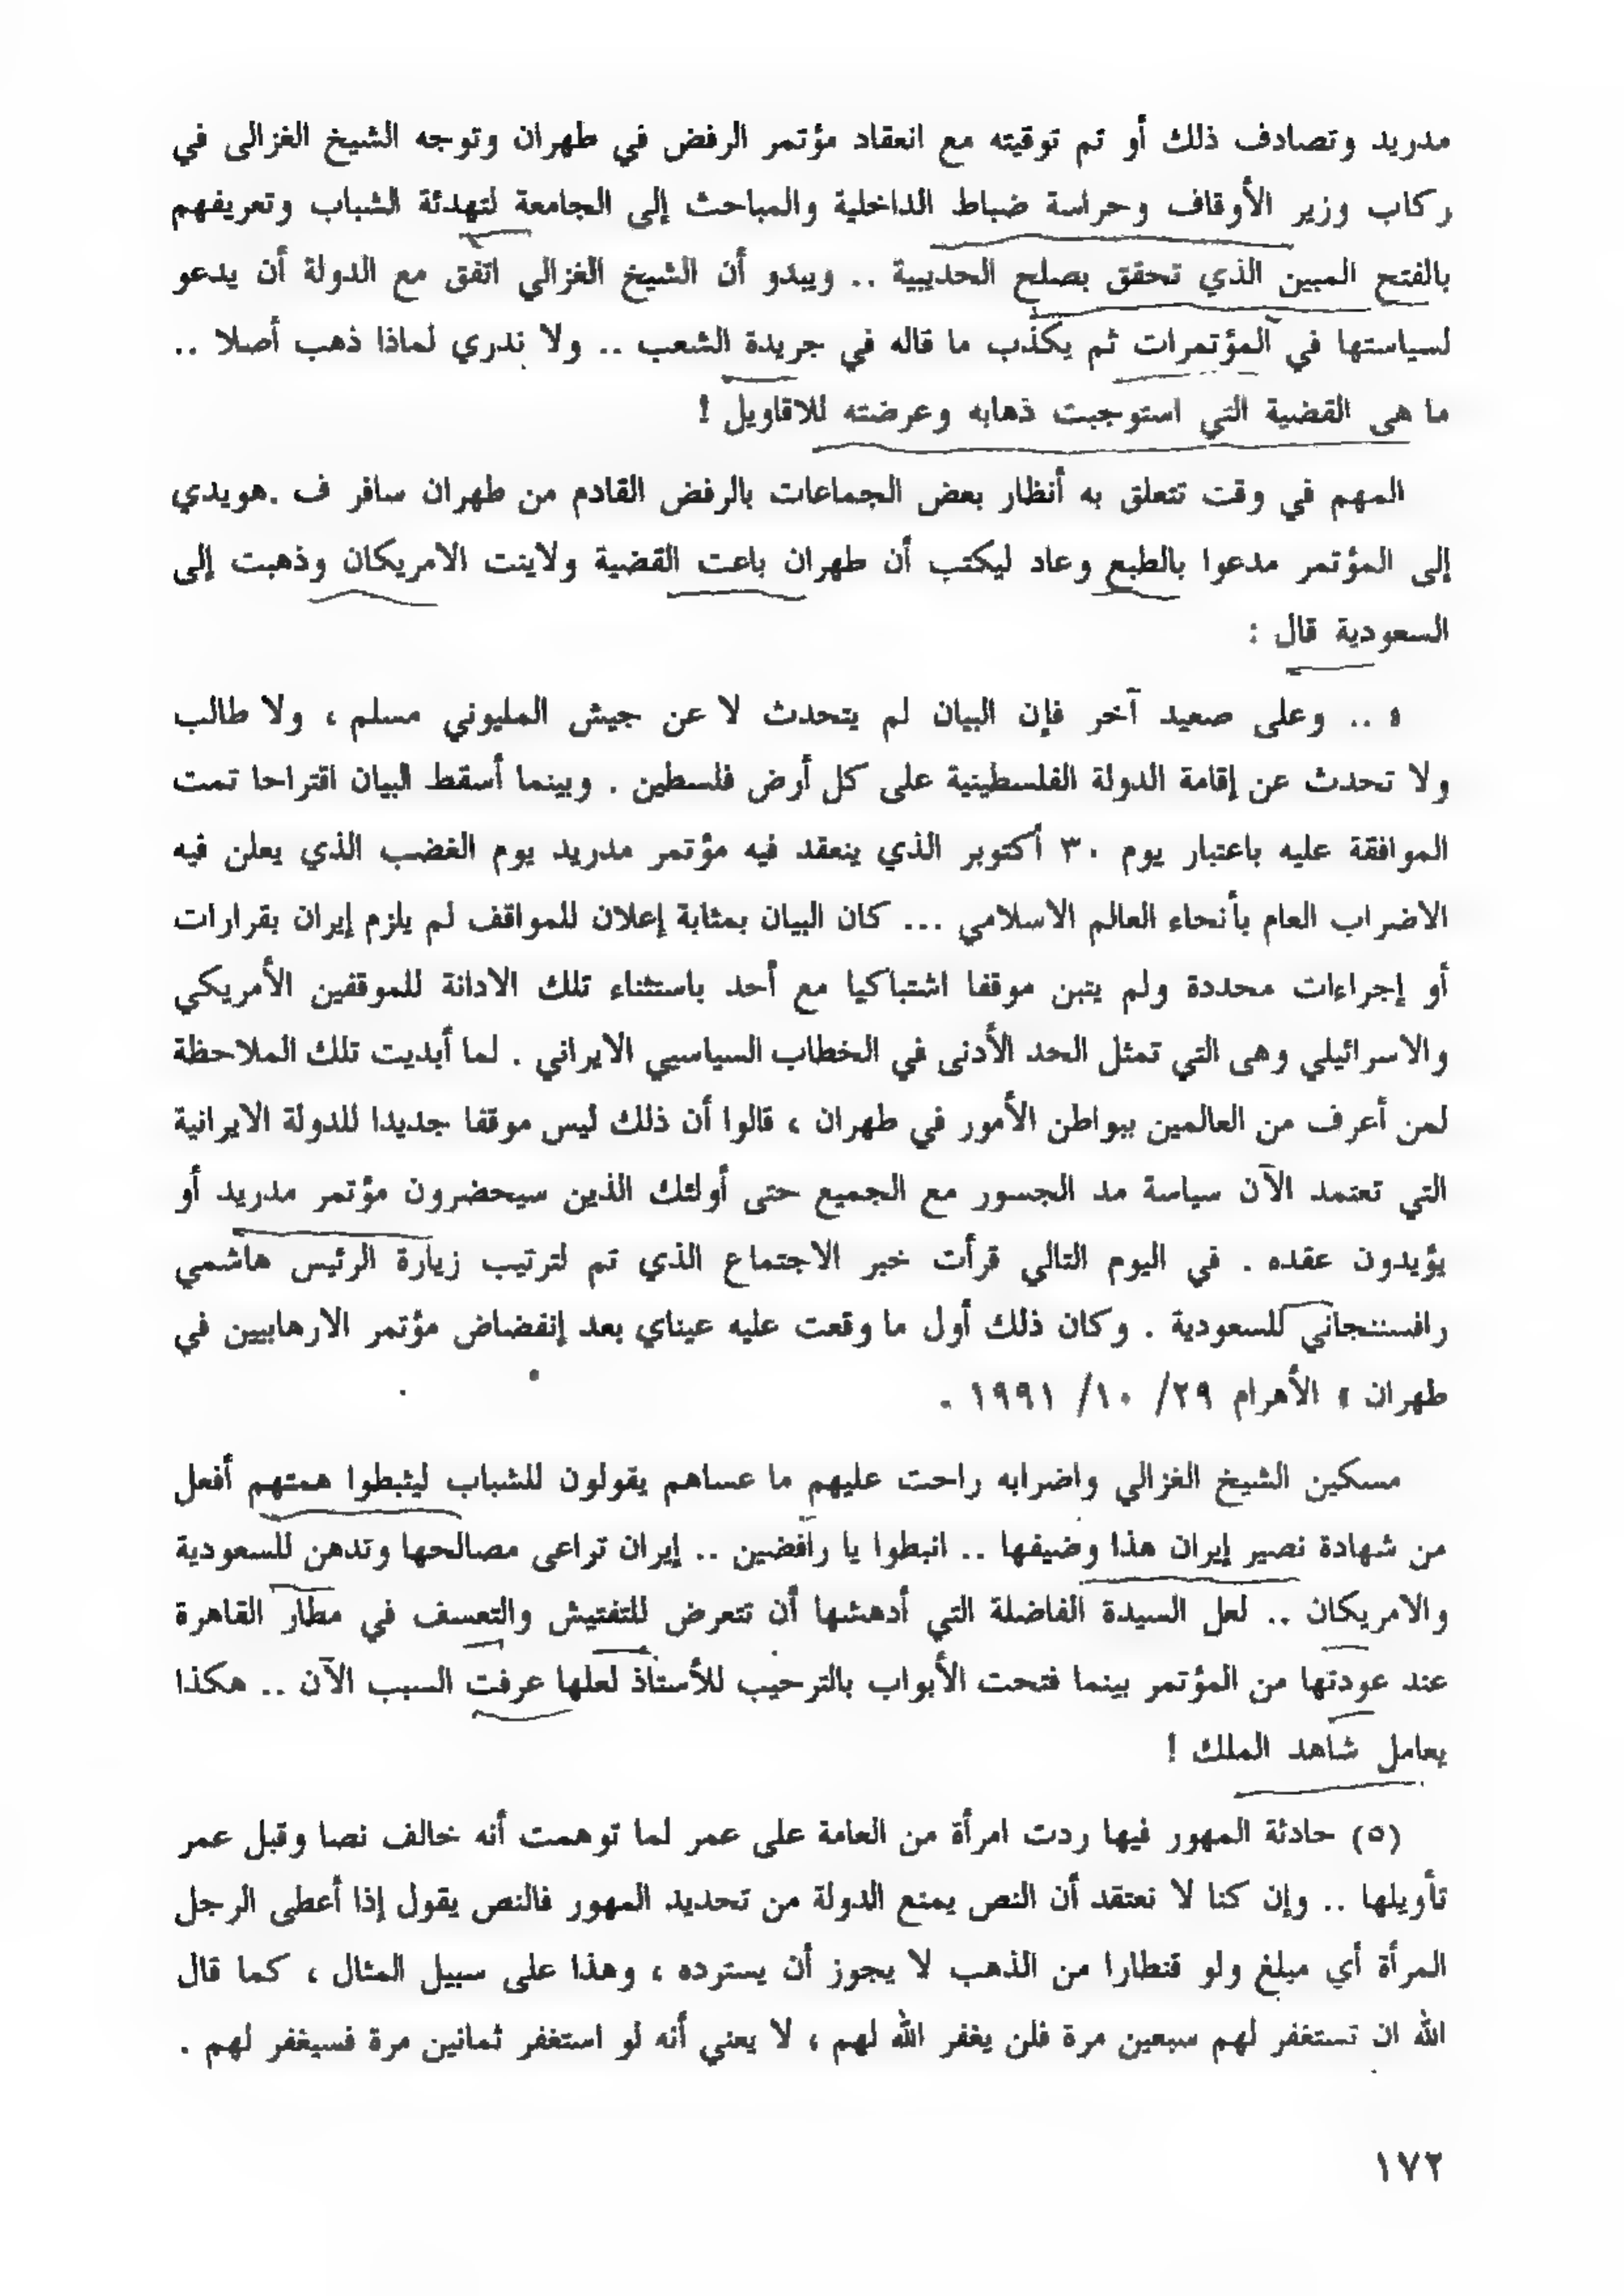 مدريد وتصادف ذلك أو تم توقيته مع انعقاد مؤتمر الرفض في طهران وتوجه الشيخ الغزالى في
ركاب وزير الأوقاف وحراسة ضباط الداخلية والمباحث إلى الجامعة لتهدئة الشباب وتعريفهم
بالفتح المبين الذي تحقق بصلح الحديبية .. ويبدو أن الشيخ الغزالي اتفق مع الدولة أن يدعو
لسياستها في المؤتمرات ثم يكذب ما قاله في جريدة الشعب .. ولا ندري لماذا ذهب أصلا ..
ما هى القضية التي استوجبت ذهابه وعرضته للاقاويل !
المهم في وقت تتعلق به أنظار بعض الجماعات بالرفض القادم من طهران سافر ف .هويدي
إلى المؤتمر مدعوا بالطبع وعاد ليكتب أن طهران باعت القضية ولاينت الامريكان وذهبت إلى
السعودية قال :
« .. وعلى صعيد آخر فإن البيان لم يتحدث لا عن جيش المليوني مسلم ، ولا طالب
ولا تحدث عن إقامة الدولة الفلسطينية على كل أرض فلسطين . وبينما أسقط البيان اقتراحا تمت
الموافقة عليه باعتبار يوم ٣٠ أكتوبر الذي ينعقد فيه مؤتمر مدريد يوم الغضب الذي يعلن فيه
الاضراب العام بأنحاء العالم الاسلامي ... كان البيان بمثابة إعلان للمواقف لم يلزم إيران بقرارات
أو إجراءات محددة ولم يتبن موقفا اشتباكيا مع أحد باستثناء تلك الادانة للموقفين الأمريكي
والاسرائيلي وهى التي تمثل الحد الأدنى في الخطاب السياسيي الايراني . لما أبديت تلك الملاحظة
لمن أعرف من العالمين ببواطن الأمور في طهران ، قالوا أن ذلك ليس موقفا جديدا للدولة الايرانية
التي تعتمد الآن سياسة مد الجسور مع الجميع حتى أولئك الذين سيحضرون مؤتمر مدريد أو
يؤيدون عقده . في اليوم التالي قرأت خبر الاجتماع الذي تم لترتيب زيارة الرئيس هاشمي
رافسنجاني للسعودية . وكان ذلك أول ما وقعت عليه عيناي بعد إنفضاض مؤتمر الارهابيين في
طهران » الأهرام ٢٩/ ١٠/ ١٩٩١ .
مسكين الشيخ الغزالي واضرابه راحت عليهم ما عساهم يقولون للشباب ليثبطوا همتهم أفعل
من شهادة نصير إيران هذا وضيفها .. انبطوا يا رافضين .. إيران تراعى مصالحها وتدهن للسعودية
والامريكان .. لعل السيدة الفاضلة التي أدهشها أن تتعرض للتفتيش والتعسف في مطار القاهرة
عند عودتها من المؤتمر بينما فتحت الأبواب بالترحيب للأستاذ لعلها عرفت السبب الآن .. هكذا
يعامل شاهد الملك !
(٥) حادثة المهور فيها ردت امرأة من العامة على عمر لما توهمت أنه خالف نصا وقبل عمر
تأويلها .. وإن كنا لا نعتقد أن النص يمنع الدولة من تحديد المهور فالنص يقول إذا أعطى الرجل
المرأة أي مبلغ ولو قنطارا من الذهب لا يجوز أن يسترده ، وهذا على سبيل المثال ، كما قال
الله ان تستغفر لهم سبعين مرة فلن يغفر الله لهم ، لا يعني أنه لو استغفر ثمانين مرة فسيغفر لهم .
١٧٢